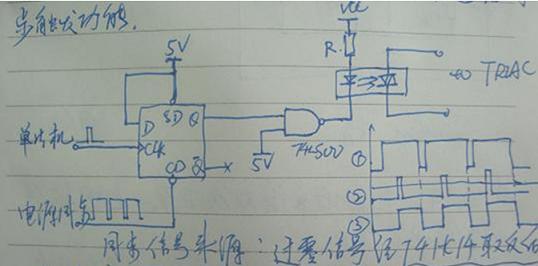 步触发功能.
Vcc
5V
R
SD
Q
D
to TRIAC
单片机
CLK
74LS00
5V
CD
Q
①
②
③
电源同步
同步信号来源:过零信号经74LS14取反后